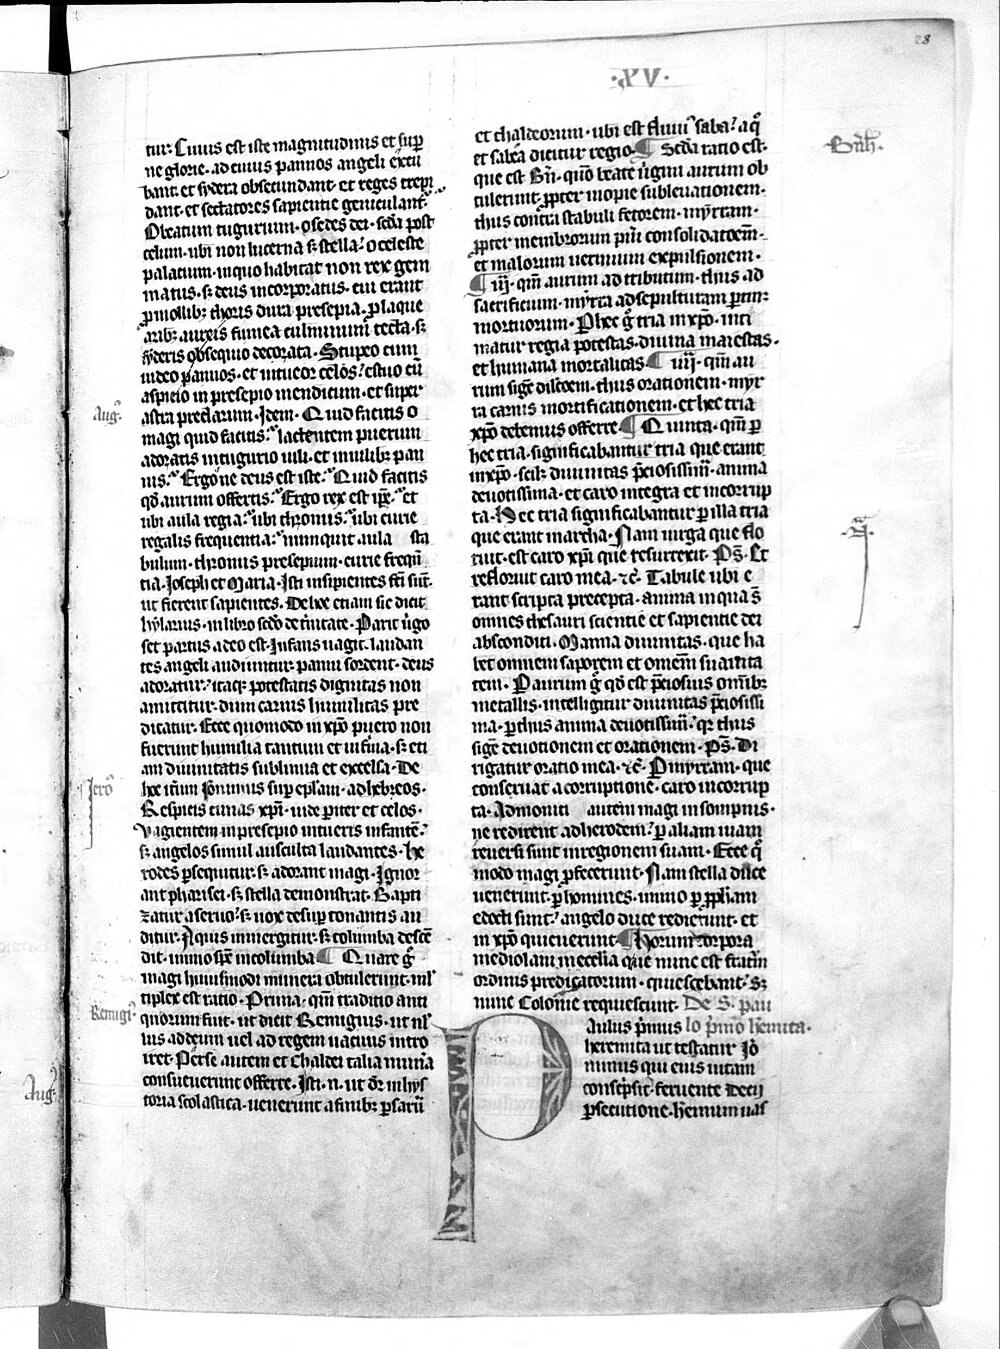 28
·XV·
tur. Cuius est iste magnitudinis et sup̄
ne glorie. ad cuius pannos angeli excu
bant. et sydera obsecundant. et reges trepi
dant. et sectatores sapientie geniculant᷑.
O beatum tugurium. o sedes dei. scd̄a post
celum. ubi non lucerna s; stella? o celeste
palatium. in quo habitat non rex gem
matus. s; deus incorporatus. cui erant
p̄ mollib; thoris dura presepia. p̄ laque
arib; aureis fumea culminum tecta. s;
syderis obsequio decorata. Stupeo cum
uideo pannos. et intueor celos? estuo cū
aspicio in presepio mendicum. et super
astra preclarum. Idem. Quid facitis o
magi quid facitis? lactentem puerum
adoratis in tugurio uili. et in uilib; pan
nis? Ergo ne deus est iste? Quid facitis
qd̄ aurum offertis? Ergo rex est ip̄e? et
ubi aula regia? ubi thronus? ubi curie
regalis frequentia? nunquit aula sta
bulum. thronus presepium. curie frequē
tia. Joseph et Maria. Isti insipientes fc̄i sūt.
ut fierent sapientes. De hec etiam sic dicit
hylarius. in libro scd̄o de t̄nitate. Parit ūgo
set partus a deo est. Infans uagit. laudan
tes angeli audiuntur. panni sordent. deus
adoratur? itaq; potestatis dignitas non
amittitur. dum carnis humilitas pre
dicatur. Ecce quomodo in xp̄o puero non
fuerunt humilia tantum et infima. s; eti
am diuinitatis sublimia et excelsa. De
hec it̄um Ieronimus sup ep̄lam. ad hebreos.
Respicis cunas xp̄i. uide p̄iter et celos.
vagientem in presepio intueris infantē?
s; angelos simul ausculta laudantes. he
rodes p̄sequitur. s; adorant magi. Ignor
ant pharisei. s; stella demonstrat. Bapti
zatur a seruo? s; uox desup tonantis au
ditur. Aquis inmergitur. s; columba descē
dit. immo sp̄c in columba ¶ Quare g̊
magi huiusmodi munera obtulerunt. ml᷑
tiplex est ratio. Prima. qm̄ traditio anti
quorum fuit. ut dicit Remigius. ut nl᷑
lus ad deum uel ad regem uacuus intro
iret. Perse autem et chaldei talia mun̄a
consueuerunt offerre. Isti .n. ut d̄r in hys
toria scolastica. uenerunt a finib; p̄sarū
et chaldeorum. ubi est fluui᷒ saba? a q̊
et sabea dicitur regio. ¶ Scd̄a ratio est.
que est B̄n. quō beate ūgini aurum ob
tulerunt. ppt̄er inopie subleuationem.
thus contra stabuli fetorem. myrram.
ppt̄er membrorum pueri consolidatōem.
et malorum uermium expulsionem.
¶ iij. qm̄ aurum ad tributum. thus ad
sacrificium. myrra ad sepulturam p̄tin;
mortuorum. P hec g̊ tria in xp̄o. inti
matur regia potestas. diuina maiestas.
et humana mortalitas. ¶ iiij. qm̄ au
rum sig᷑ dilectōem. thus orationem. myr
ra carnis mortificationem. et hec tria
xp̄o debemus offerre. ¶ Quinta. qm̄ p
hec tria. significabantur tria que erant
in xp̄o. scil; diuinitas p̄ciosissīa. anima
deuotissima. et caro integra et incorrup
ta. Hec tria significabantur p̄ illa tria
que erant in archa. Nam uirga que flo
ruit. est caro xp̄i que resurrexit. Ps̄. Et
refloruit caro mea. ⁊c̄. Tabule ubi e
rant scripta precepta. anima in qua s̄
omnes thesauri scientie et sapientie dei
absconditi. Manna diuinitas. que ha
bet omnem saporem et omem̄ suauita
tem. P aurum g̊ qd̄ est p̄ciosius omīb;
metallis. intelligitur diuinitas p̄ciosissi
ma. p̄ thus anima deuotissima? qr thus
sig᷑ deuotionem et orationem. Ps̄. Di
rigatur oratio mea. ⁊c̄. P myrram. que
conseruat a corruptione. caro incorrup
ta. Admoniti autem magi in sompnis.
ne redirent ad herodem? p̄ aliam uiam
reuersi sunt in regionem suam. Ecce q̊
modo magi p̄fecerunt. Nam stella duce
uenerunt. p̄ homines. immo p̄ pph̄am
edocti sunt? angelo duce redierunt. et
in xp̄o quieuerunt ¶ Horum corpora
mediolani in ecclia que nunc est fratrū
ordinis predicatorum. quiescebant. S;
nunc Colonie requiescunt. De S. pau
lo p̄mo h̄emita.
Aulus p̄mus
heremita ut testatur Iō
nimus qui eius uitam
conscp̄sit. feruente Decij
p̄secutione. h̄emum uas
Aug᷒.
Iero᷒
Remigi᷒.
Aug᷒.
Bn̄h.